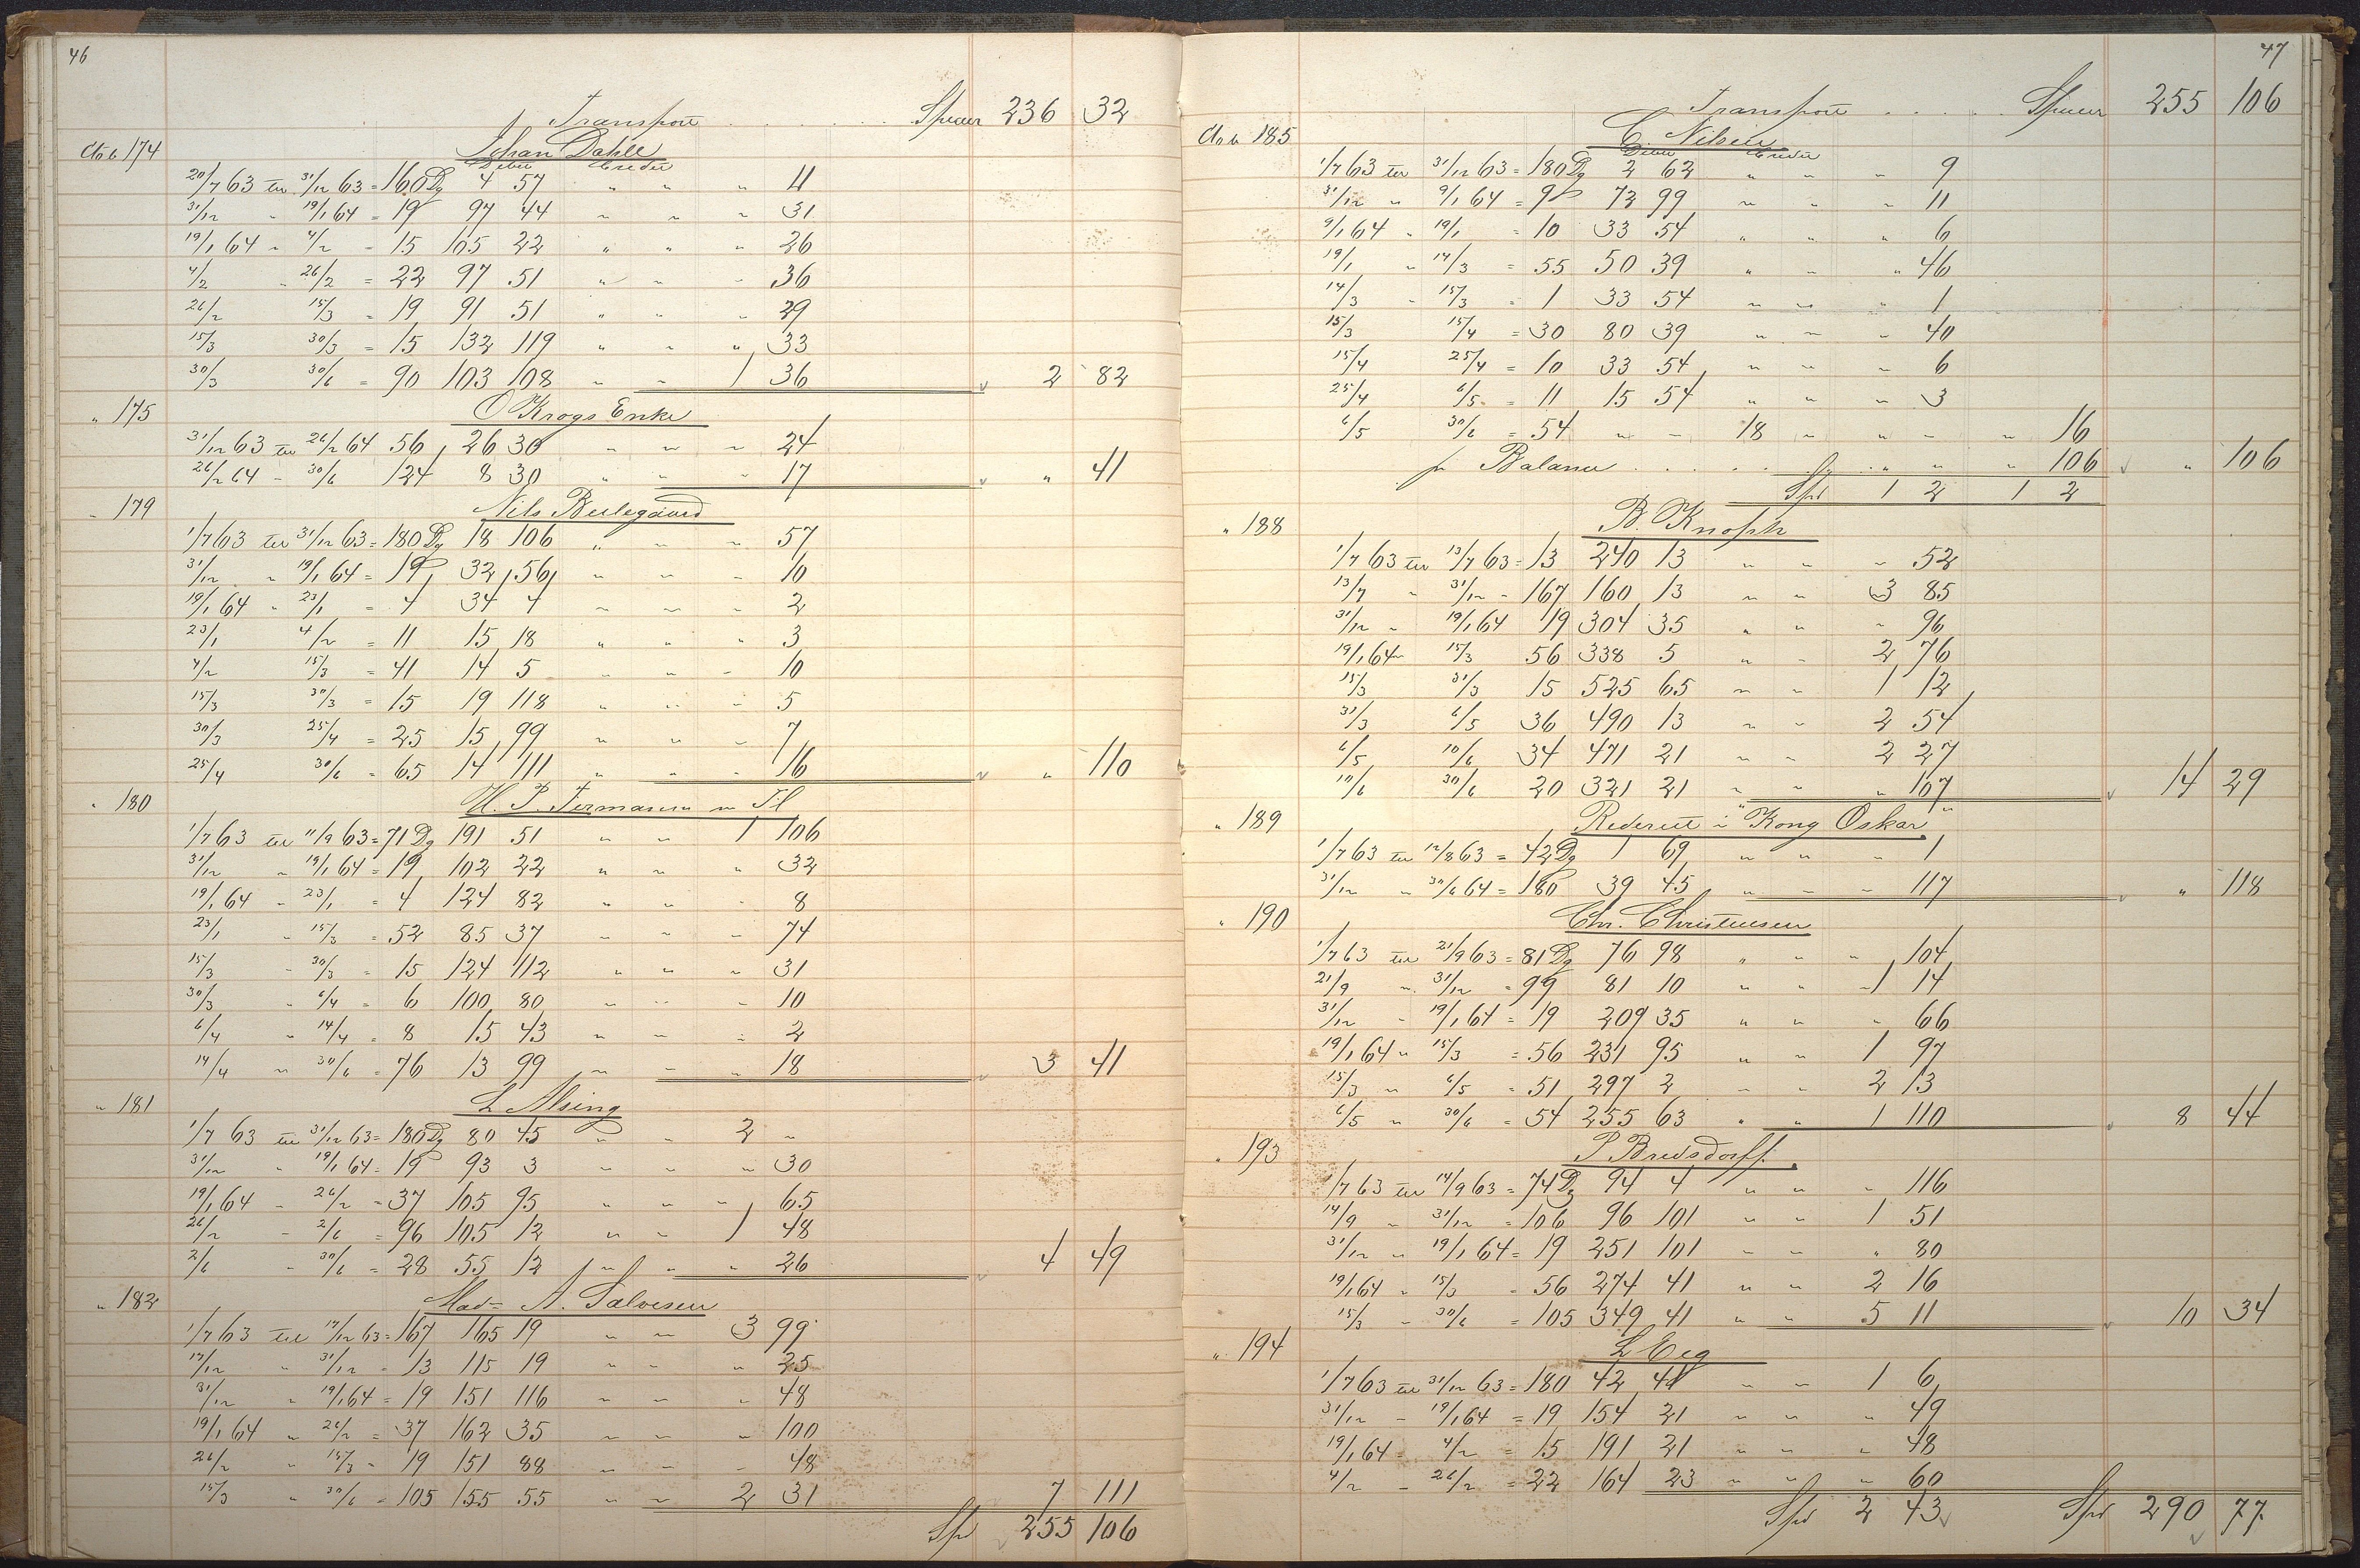 46
Transport . . . . . . . Specier 236 32
Cto 6 174 Johan Dahle
Debet Credit
20/7 63 til 31/12 63 = 160 Dg 4 57 " " " 4
31/12 " 19/1 64 = 19 97 44 " " " 31
19/1 64 " 4/2 = 15 105 22 " " " 26
4/2 " 26/2 = 22 97 51 " " " 36
26/2 15/3 = 19 91 51 " " " 29
15/3 30/3 = 15 132 119 " " " 33
30/3 30/6 = 90 103 108 " " 1 36 2 82
" 175 O Krogs Enke
31/12 63 til 26/2 64 56 26 30 " " " 24
26/2 64 - 30/6 124 8 30 " " " 17 " 41
" 179 Nils
1/7 63 til 31/12 63 = 180 Dg 18 106 " " " 57
31/12 " 19/1 64 = 19 32 56 " " " 10
19/1 64 " 23/1 = 4 34 4 " " " 2
23/1 4/2 = 11 15 18 " " " 3
4/2 15/3 = 41 14 5 " " " 10
15/3 30/3 = 15 19 118 " " " 5
30/3 25/4 = 25 15 99 " " " 7
25/4 30/6 = 65 14 111 " " " 16 " 110
" 180 H. P.
1/7 63 til 11/9 63 = 71 Dg 191 51 " " 1 106
31/12 " 19/1 64 = 19 102 22 " " " 32
19/1 64 " 23/1 = 4 124 82 " " " 8
23/1 " 15/3 = 52 85 37 " " " 74
15/3 " 30/3 = 15 124 112 " " " 31
30/3 " 6/4 = 6 100 80 " " " 10
6/4 " 14/4 = 8 15 43 " " " 2
14/4 " 30/6 = 76 13 99 " " " 18 3 41
" 181 L Alsing
1/7 63 til 31/12 63 = 180 Dg 80 45 " " 2 "
31/12 " 19/1 64 = 19 93 3 " " " 30
19/1 64 - 26/2 = 37 105 95 " " " 65
26/2 - 2/6 = 96 105 12 " " 1 48
2/6 " 30/6 = 28 55 12 " " " 26 4 49
" 182 Mad= A. Salvesen
1/7 63 til 17/12 63 = 167 165 19 " " 3 99
17/12 " 31/12 = 13 115 19 " " " 25
31/12 " 19/1 64 = 19 151 116 " " " 48
19/1 64 " 26/2 = 37 162 35 " " " 100
26/2 " 15/3 = 19 151 88 " " " 48
15/3 " 30/6 = 105 155 55 " " 2 31 7 111
Spd 255 106
47
Transport . . . . . Specier 255 106
Cto 6 185 C. Nilsen
Debet Credit
1/7 63 til 31/12 63 = 180 Dg 2 62 " " " 9
31/12 " 9/1 64 = 9 73 99 " " " 11
9/1 64 " 19/1 = 10 33 54 " " " 6
19/1 " 14/3 = 55 50 39 " " " 46
14/3 " 15/3 = 1 33 54 " " " 1
15/3 15/4 = 30 80 39 " " " 40
15/4 25/4 = 10 33 54 " " " 6
25/4 6/5 = 11 15 54 " " " 3
6/5 30/6 = 54 " - 18 " " " " 16
pr Balance . . . . . " " " 106 " 106
Spd 1 2 1 2
" 188 B. Knoph
1/7 63 til 13/7 63 = 13 240 13 " " " 52
13/7 " 31/12 " 167 160 13 " " 3 85
31/12 " 19/1 64 19 304 35 " " " 96
19/1 64 " 15/3 56 338 5 " " 2 76
15/3 31/3 15 525 65 " " 1 12
31/3 6/5 36 490 13 " " 2 54
6/5 10/6 34 471 21 " " 2 27
10/6 30/6 20 321 21 " " " 107 14 29
" 189 Rederiet i "Kong Oskar"
1/7 63 til 12/8 63 = 42 Dg 1 69 " " " 1
31/12 " 30/6 64 = 180 39 45 " " " 117 " 118
" 190 Chr. Christensen
1/7 63 til 21/9 63 = 81 Dg 76 98 " " " 104
21/9 " 31/12 = 99 81 10 " " 1 14
31/12 " 19/1 64 = 19 209 35 " " " 66
19/1 64 " 15/3 = 56 231 95 " " 1 97
15/3 " 6/5 = 51 297 2 " " 2 13
6/5 " 30/6 = 54 255 63 " " 1 110 8 44
" 193 P. Bredsdorff.
1/7 63 til 14/9 63 = 74 Dg 94 4 " " " 116
14/9 " 31/12 = 106 96 101 " " 1 51
31/12 " 19/1 64 = 19 251 101 " " " 80
19/1 64 " 15/3 = 56 274 41 " " 2 16
15/3 " 30/6 = 105 349 41 " " 5 11 10 34
" 194 L Eeg
1/7 63 til 31/12 63 = 180 42 44 " " 1 6
31/12 - 19/1 64 = 19 154 21 " " " 49
19/1 64 = 4/2 = 15 191 21 " " " 48
4/2 - 26/2 = 22 164 23 " " " 60
Spd 2 43 Spd 290 77.